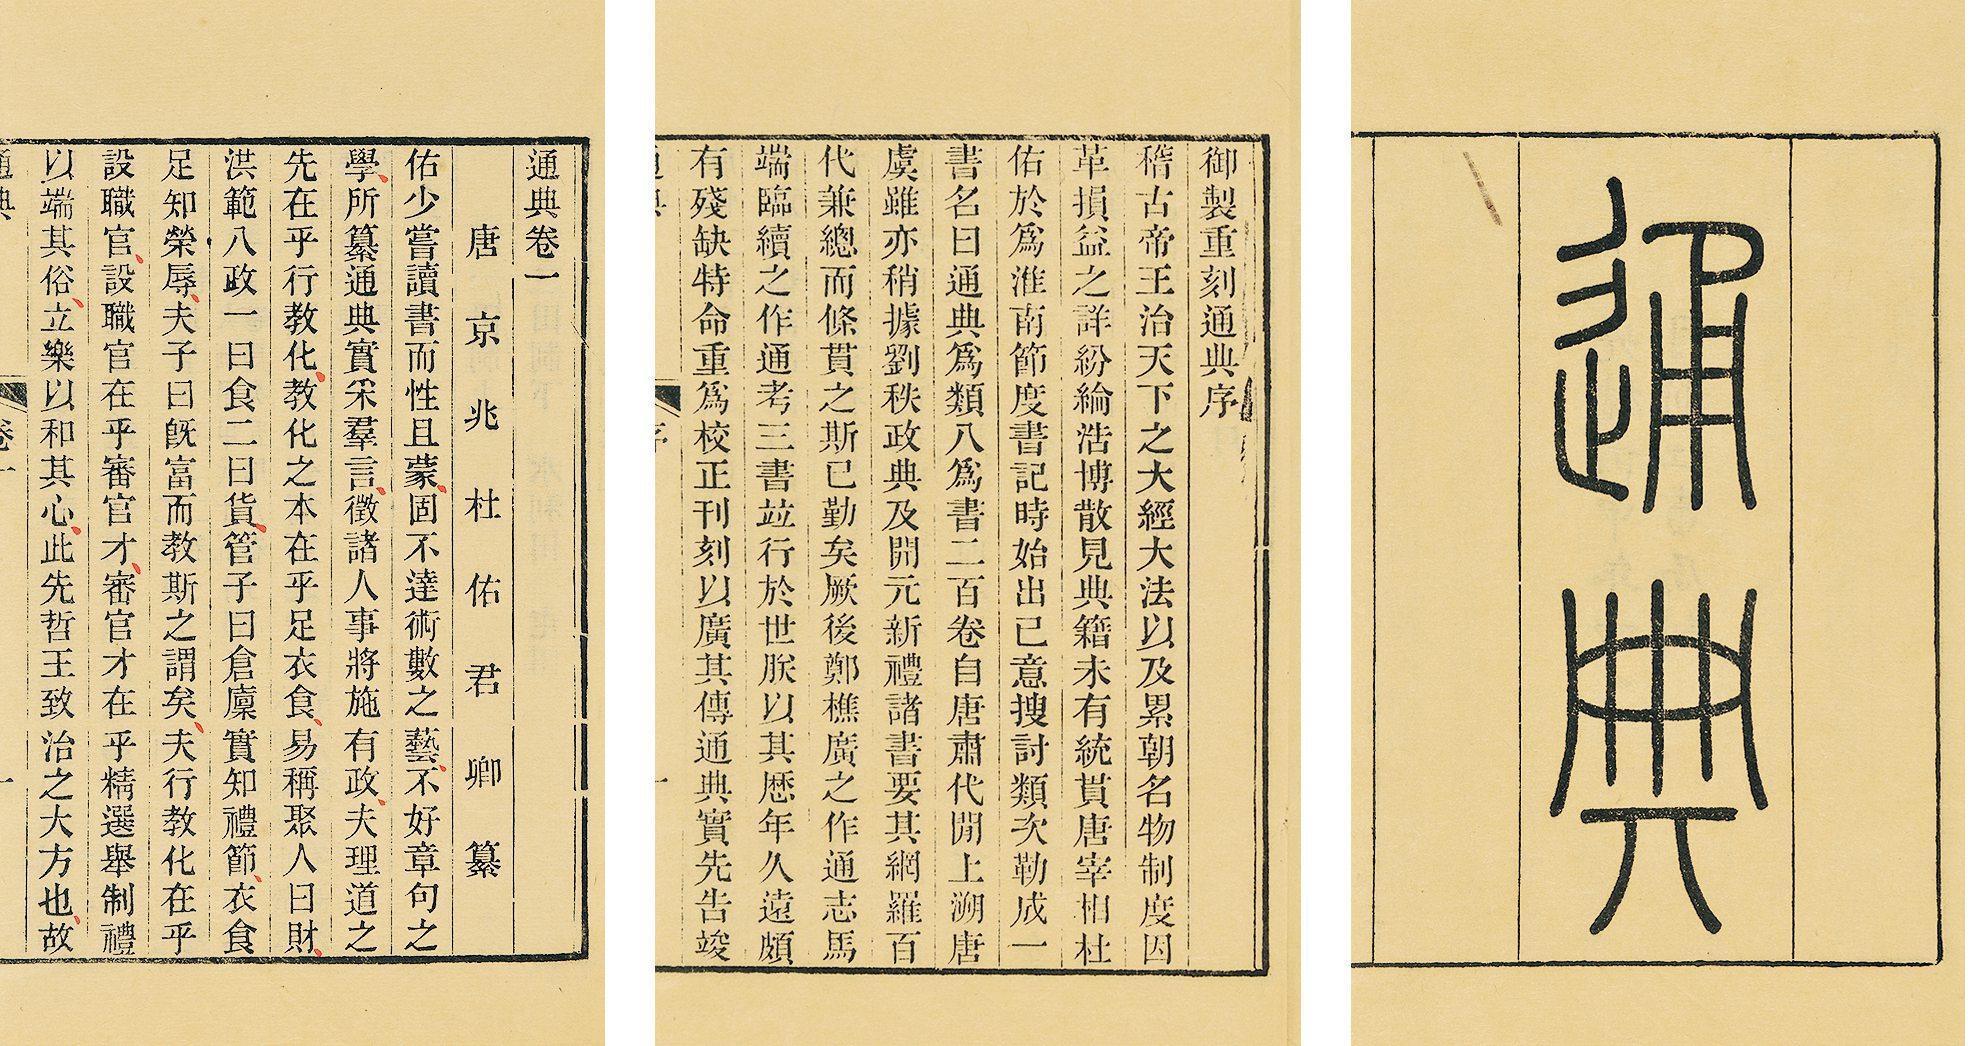 通典
御製重刻通典序
稽古帝王治天下之大經大法以及累朝名物制度因
革損益之詳紛綸浩博散見典籍未有統貫唐宰相杜
佑於爲淮南節度書記時始出已意搜討類次勒成一
書名曰通典爲類八爲書二百卷自唐肅代開上溯唐
虞雖亦稍據劉秩政典及開元新禮諸書要其網羅百
代兼總而條貫之斯已勤矣厥後鄭樵廣之作通志馬
端臨續之作通考三書竝行於世朕以其歷年久遠頗
有殘缺特命重爲校正刊刻以廣其傳通典實先告竣
通典
序
一
通典卷一
唐京兆杜佑君卿纂
佑少嘗讀書而性且蒙固不達術數之藝不好章句之
學所纂通典實采羣言徵諸人事將施有政夫理道之
先在乎行教化教化之本在乎足衣食易稱聚人曰財
洪範八政一曰食二曰貨管子曰倉廩實知禮節衣食
足知榮辱夫子曰旣富而教斯之謂矣夫行教化在乎
設職官設職官在乎審官才審官才在乎精選舉制禮
以端其俗立樂以和其心此先哲王致治之大方也故
通典
卷一
一